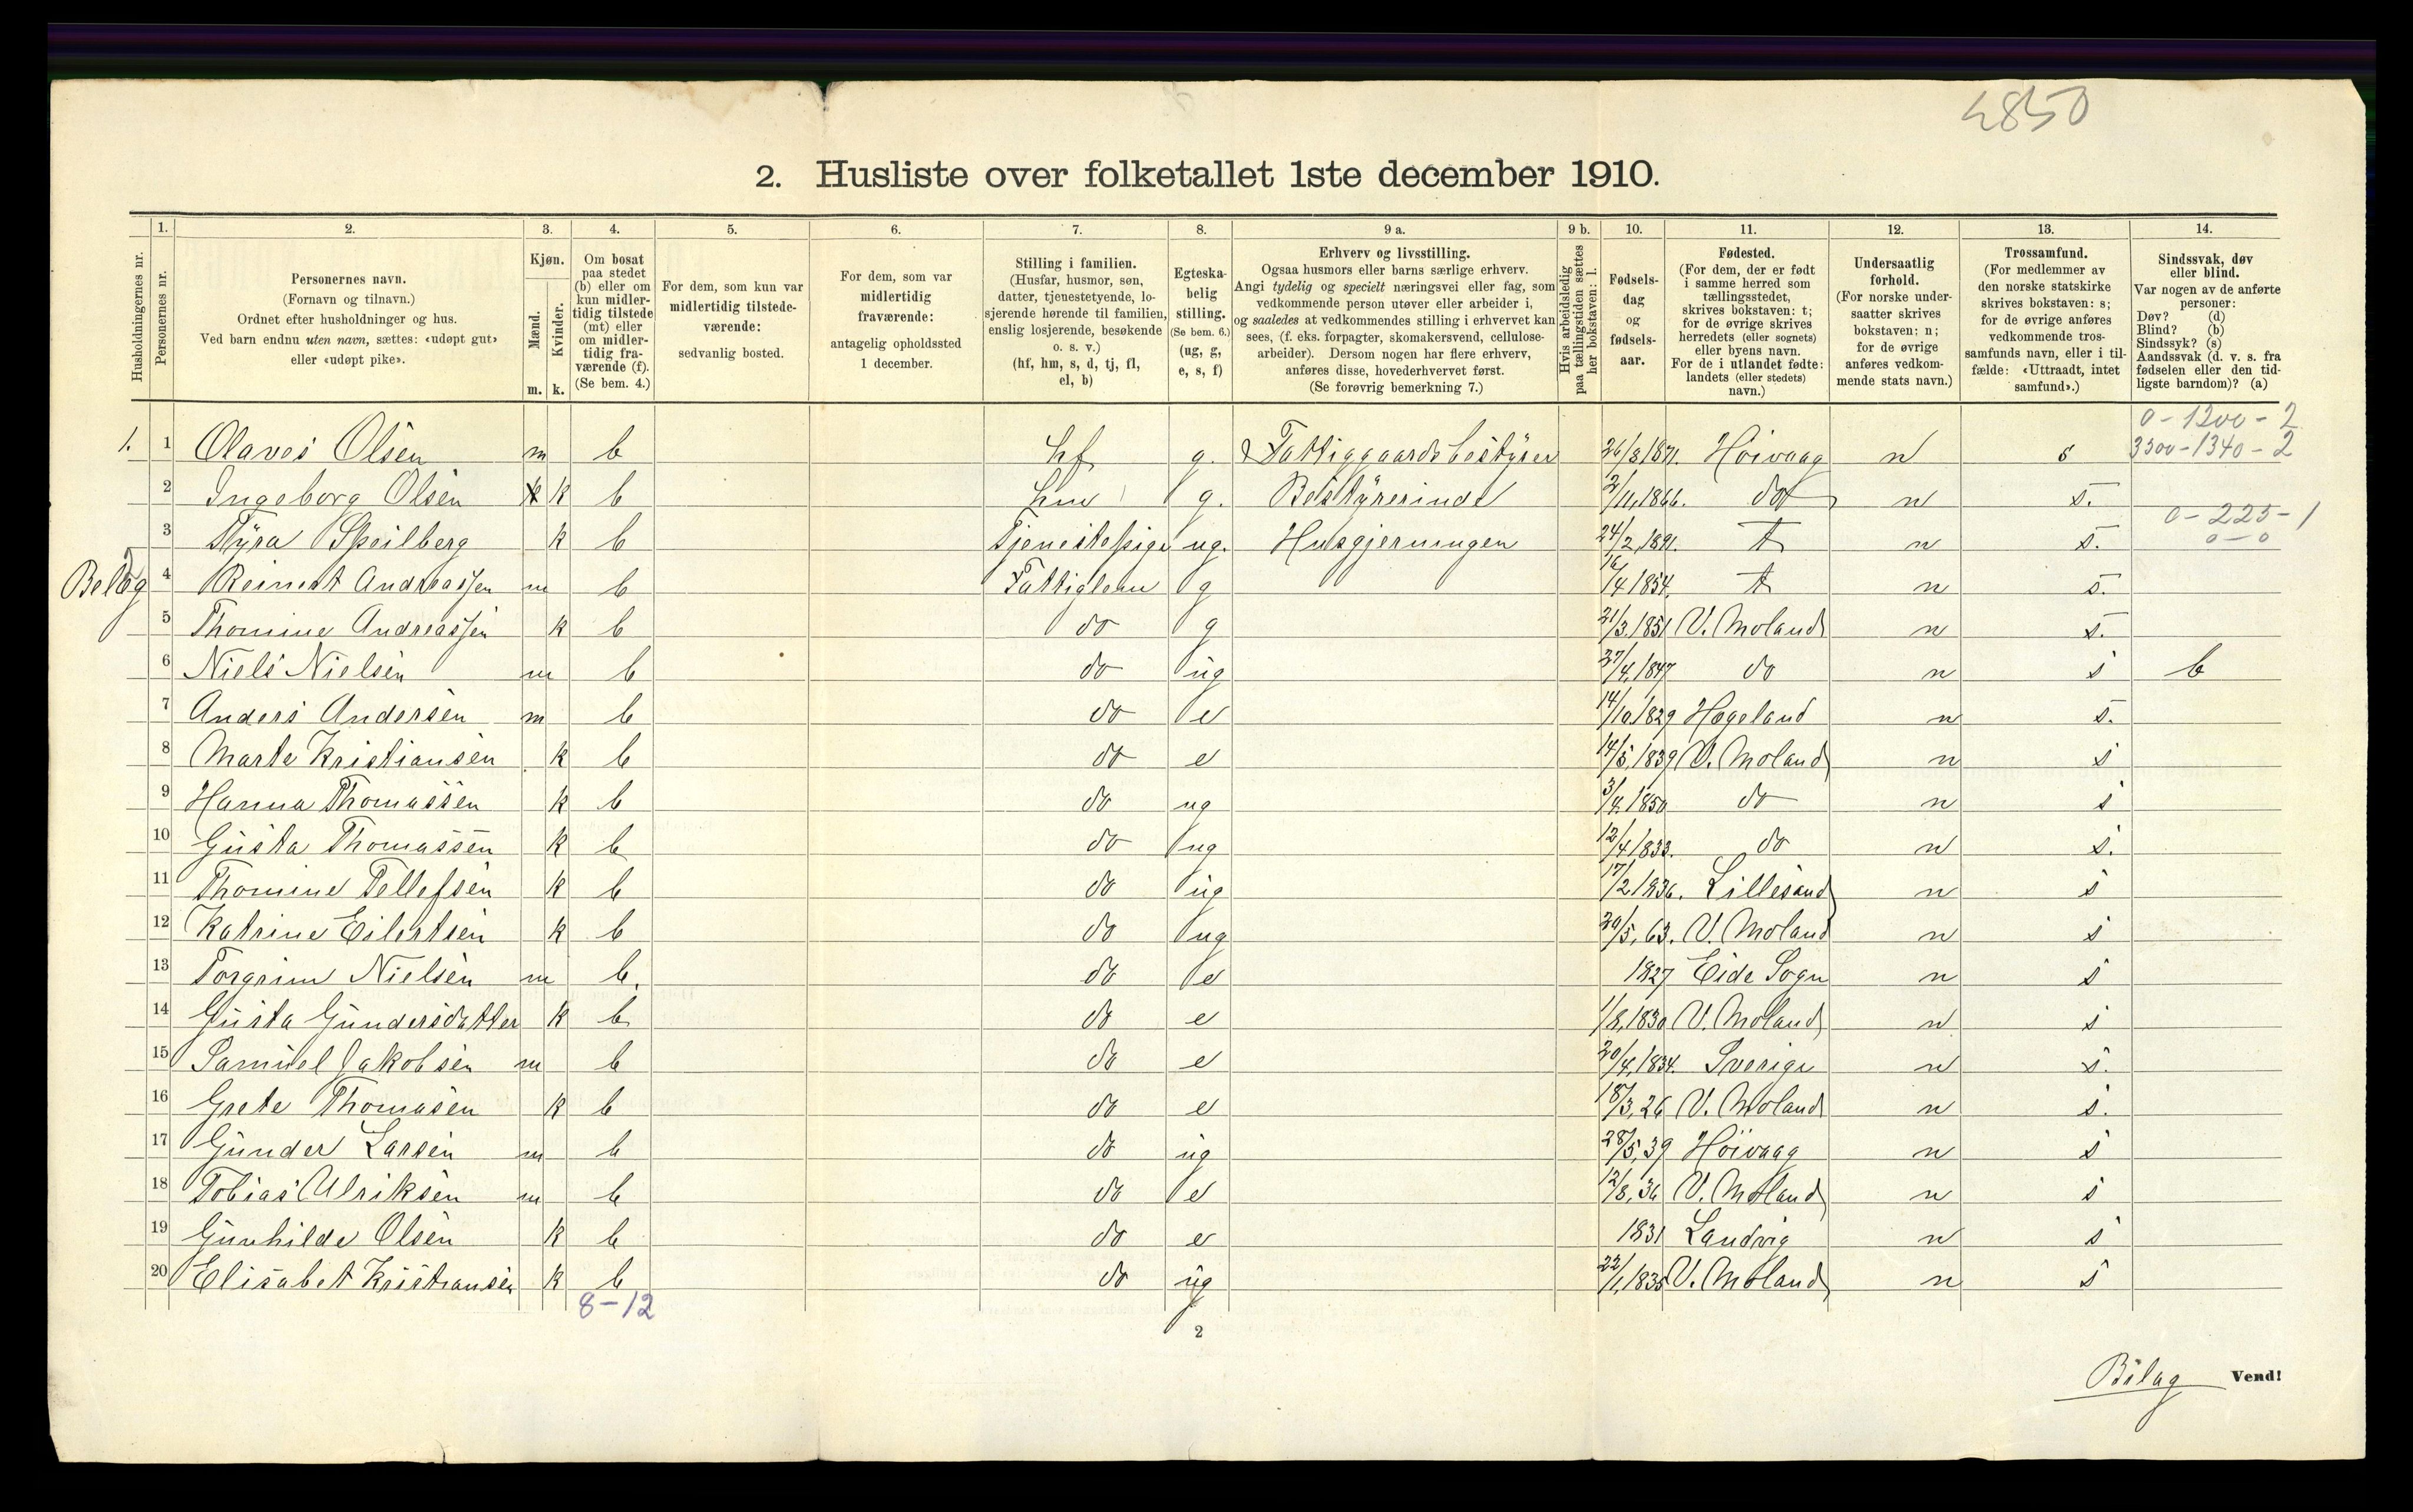 4850
2. Husliste over folketallet 1ste december 1910.
1. 2. 3. 4. 5. 6. 7. 8. 9 a. 9 b. 10. 11. 12. 13. 14.
Husholdningernes nr.
Personernes nr.
Personernes navn.
(Fornavn og tilnavn.)
Ordnet efter husholdninger og hus.
Ved barn endnu uten navn, sættes: «udøpt gut»
eller «udøpt pike».
Kjøn.
Mænd.
Kvinder.
m. k.
Om bosat
paa stedet
(b) eller om
kun midler-
tidig tilstede
(mt) eller
om midler-
tidig fra-
værende (f).
(Se bem. 4.)
For dem, som kun var
midlertidig tilstede-
værende:
sedvanlig bosted.
For dem, som var
midlertidig
fraværende:
antagelig opholdssted
1 december.
Stilling i familien.
(Husfar, husmor, søn,
datter, tjenestetyende, lo-
sjerende hørende til familien,
enslig losjerende, besøkende
o. s. v.)
(hf, hm, s, d, tj, fl,
el, b)
Egteska-
belig
stilling.
(Se bem. 6.)
(ug, g,
e, s, f)
Erhverv og livsstilling.
Ogsaa husmors eller barns særlige erhverv.
Angi tydelig og specielt næringsvei eller fag, som
vedkommende person utøver eller arbeider i,
og saaledes at vedkommendes stilling i erhvervet kan
sees, (f. eks. forpagter, skomakersvend, cellulose-
arbeider). Dersom nogen har flere erhverv,
anføres disse, hovederhvervet først.
(Se forøvrig bemerkning 7.)
Hvis arbeidsledig
paa tællingstiden sættes
her bokstaven: l.
Fødsels-
dag
og
fødsels-
aar.
Fødested.
(For dem, der er født
i samme herred som
tællingsstedet,
skrives bokstaven: t;
for de øvrige skrives
herredets (eller sognets)
eller byens navn.
For de i utlandet fødte:
landets (eller stedets)
navn.)
Undersaatlig
forhold.
(For norske under-
saatter skrives
bokstaven: n;
for de øvrige
anføres vedkom-
mende stats navn.)
Trossamfund.
(For medlemmer av
den norske statskirke
skrives bokstaven: s;
for de øvrige anføres
vedkommende tros-
samfunds navn, eller i til-
fælde: «Uttraadt, intet
samfund».)
Sindssvak, døv
eller blind.
Var nogen av de anførte
personer:
Døv? (d)
Blind? (b)
Sindssyk? (s)
Aandssvak (d. v. s. fra
fødselen eller den tid-
ligste barndom)? (a)
0-1200-2
1. 1 Olaves Olsen m b hf g. Fattiggaardsbestyrer 26/8 1871. Höivaag n s 3300-1340-2
2 Ingeborg Olsen k b hm g. Bestyrerinde 2/11, 1866. do n s.
0-225-1
3 Tyra Speilberg k b Tjenestepige ug. Husgjerningen 24/2, 1891. t n s. 0-0
Belag 4 Reinert Andreassen m b Fattiglem g 16/4 1854. t n s.
5 Thomine Andreassen k b do g 21/3, 1851 V. Moland n s.
6 Niels Nielsen m b do ug 27/4, 1847 do n s b
7 Anders Andersen m b do e 14/10, 1829 Hægeland n s.
8 Marte Kristiansen k b do e 14/5, 1839 V. Moland n s
9 Hanna Thomassen k b do ug 3/4, 1850 do n s
10 Gusta Thomassen k b do ug 12/4 1833. do n s.
11 Thomine Tellefsen k b do ug 17/2 1836. Lillesand n s
12 Katrine Eilertsen k b do ug 20/5, 63. V. Moland n s
13 Torgrim Nielsen m b. do e 1827 Eide Sogn n s
14 Gusta Gundersdatter k b do e 1/8, 1830 V. Moland n s
15 Samuel Jakobsen m b do e 20/4, 1834. Sverige n s.
16 Grete Thomasen k b do e 18/3, 26 V. Moland n s.
17 Gunder Larsen m b do ug 28/5, 39 Höivaag n s
18 Tobias Ulriksen m b do e 12/8, 36 V. Moland n s
19 Gunhilde Olsen k b do e 1831 Landvig n s
20 Elisabet Kristiansen k b do ug 22/1, 1835 V. Moland n s
8-12
2
Bilag Vend!